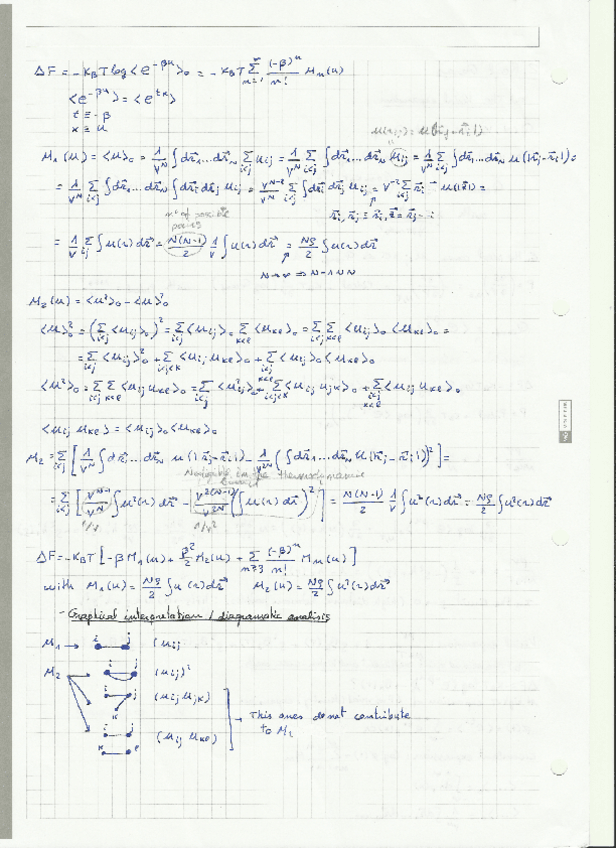 ΔF = -K_B T log <e^{-βu}>₀ = -K_B T Σ_{n=1}^∞ (-β)^n/n! M_n(u)
<e^{-βu}> = <e^{tx}>
t ≡ -β
x ≡ u
M₁(u) = <u>₀ = 1/V^N Σ_{i<j} ∫dr⃗₁...dr⃗_N u_ij = 1/V^N Σ_{i<j} ∫dr⃗₁...dr⃗_N u_ij = 1/V^N Σ_{i<j} ∫dr⃗₁...dr⃗_N u(|r⃗_j - r⃗_i|) =
= 1/V^N Σ_{i<j} ∫dr⃗₁...dr⃗_N ∫dr⃗_i dr⃗_j u_ij = V^{N-2}/V^N Σ_{i<j} ∫dr⃗_i dr⃗_j u_ij =
nº of possible
= 1/V Σ_{ij} ∫u(r)dr⃗ = N(N-1)/2 1/V ∫u(r)dr⃗ = Nρ/2 ∫u(r)dr⃗
N→∞ ⇒ N-1 ~ N
M₂(u) = <u²>₀ - <u>₀²
<u>₀² = (Σ_{i<j} <u_ij>₀)² = Σ_{i<j} <u_ij>₀ Σ_{k<l} <u_kl>₀ = Σ_{i<j} Σ_{k<l} <u_ij>₀ <u_kl>₀ =
= Σ_{i<j} <u_ij>₀² + Σ_{i<j<k} <u_ij u_jk>₀ + Σ_{i<j k<l} <u_ij>₀ <u_kl>₀
<u²>₀ = Σ_{i<j} Σ_{k<l} <u_ij u_kl>₀ = Σ_{i<j} <u_ij²>₀ + Σ_{i<j<k} <u_ij u_jk>₀ + Σ_{i<j k<l} <u_ij u_kl>₀
<u_ij u_kl> = <u_ij>₀ <u_kl>₀
M₂ = Σ_{i<j} [ 1/V^N ∫dr⃗₁...dr⃗_N u(|r⃗_j - r⃗_i|) - 1/V^{2N} (∫dr⃗₁...dr⃗_N u(|r⃗_j - r⃗_i|))² ] =
Negligible in the thermodynamic
limit
= Σ_{i<j} [ V^{N-1}/V^N ∫u²(r)dr⃗ - V^{2(N-1)}/V^{2N} (∫u(r)dr⃗)² ] = N(N-1)/2 1/V ∫u²(r)dr⃗ = Nρ/2 ∫u²(r)dr⃗
1/V 1/V²
ΔF = -K_B T [ -β M₁(u) + β²/2 M₂(u) + Σ_{n≥3} (-β)^n/n! M_n(u) ]
with M₁(u) = Nρ/2 ∫u(r)dr⃗ M₂(u) = Nρ/2 ∫u²(r)dr⃗
- Graphical interpretation / diagramatic analisis
M₁ → i j (u_ij
M₂ i j (u_ij)²
i j k (u_ij u_jk)
i j k l (u_ij u_kl)
→ This ones do not contribute
to M₂